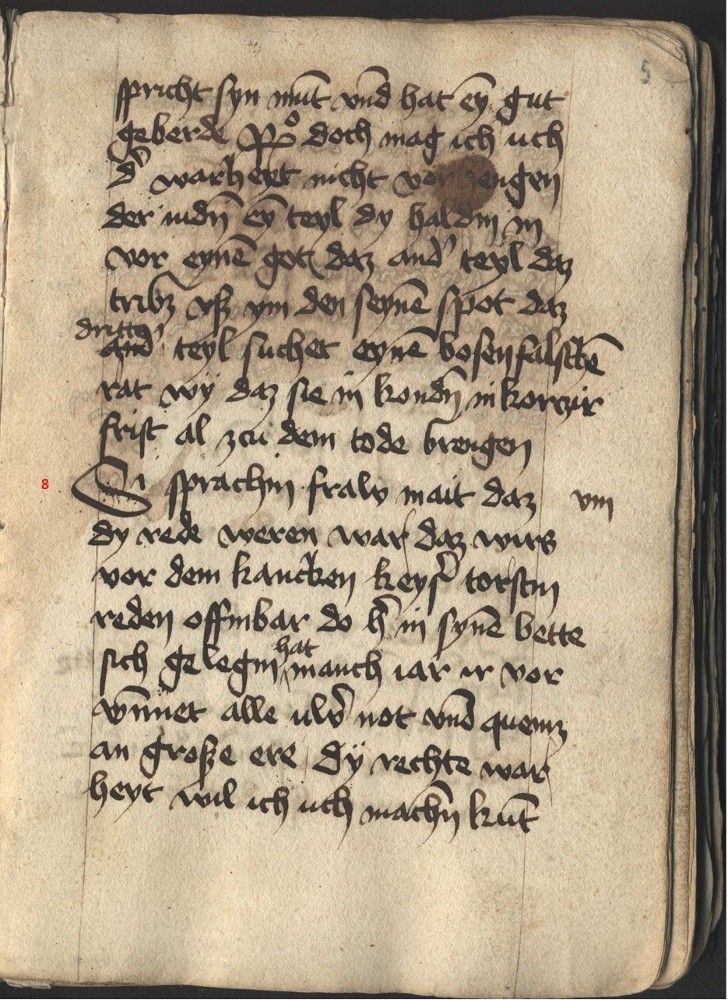 5
spricht syn mūt vnd hat eȳ gut
geberde Ro doch mag ich uch
d' warheyt nicht vor zeugen
der iudn̄ eȳ teyl dy haldin in
vor eynē got daz and' teyl daz
tribz vß ym den seynē spot daz
dritte
and' teyl suchet eynē bosen falschē
rat wy daz sie in kondn̄ in korczir
frist al zcu dem tode brengen
8 Si sprachin fraw mait daz viii
dy rede weren war daz wirs
vor dem krancken keys' torstin
reden offinbar do h' in synē bette
hat
sich gelegin manch iar ir vor
wȳnnet alle uw' not vnd quemz
an große ere dÿ rechte war
heyt wil ich uch machn̄ kūt